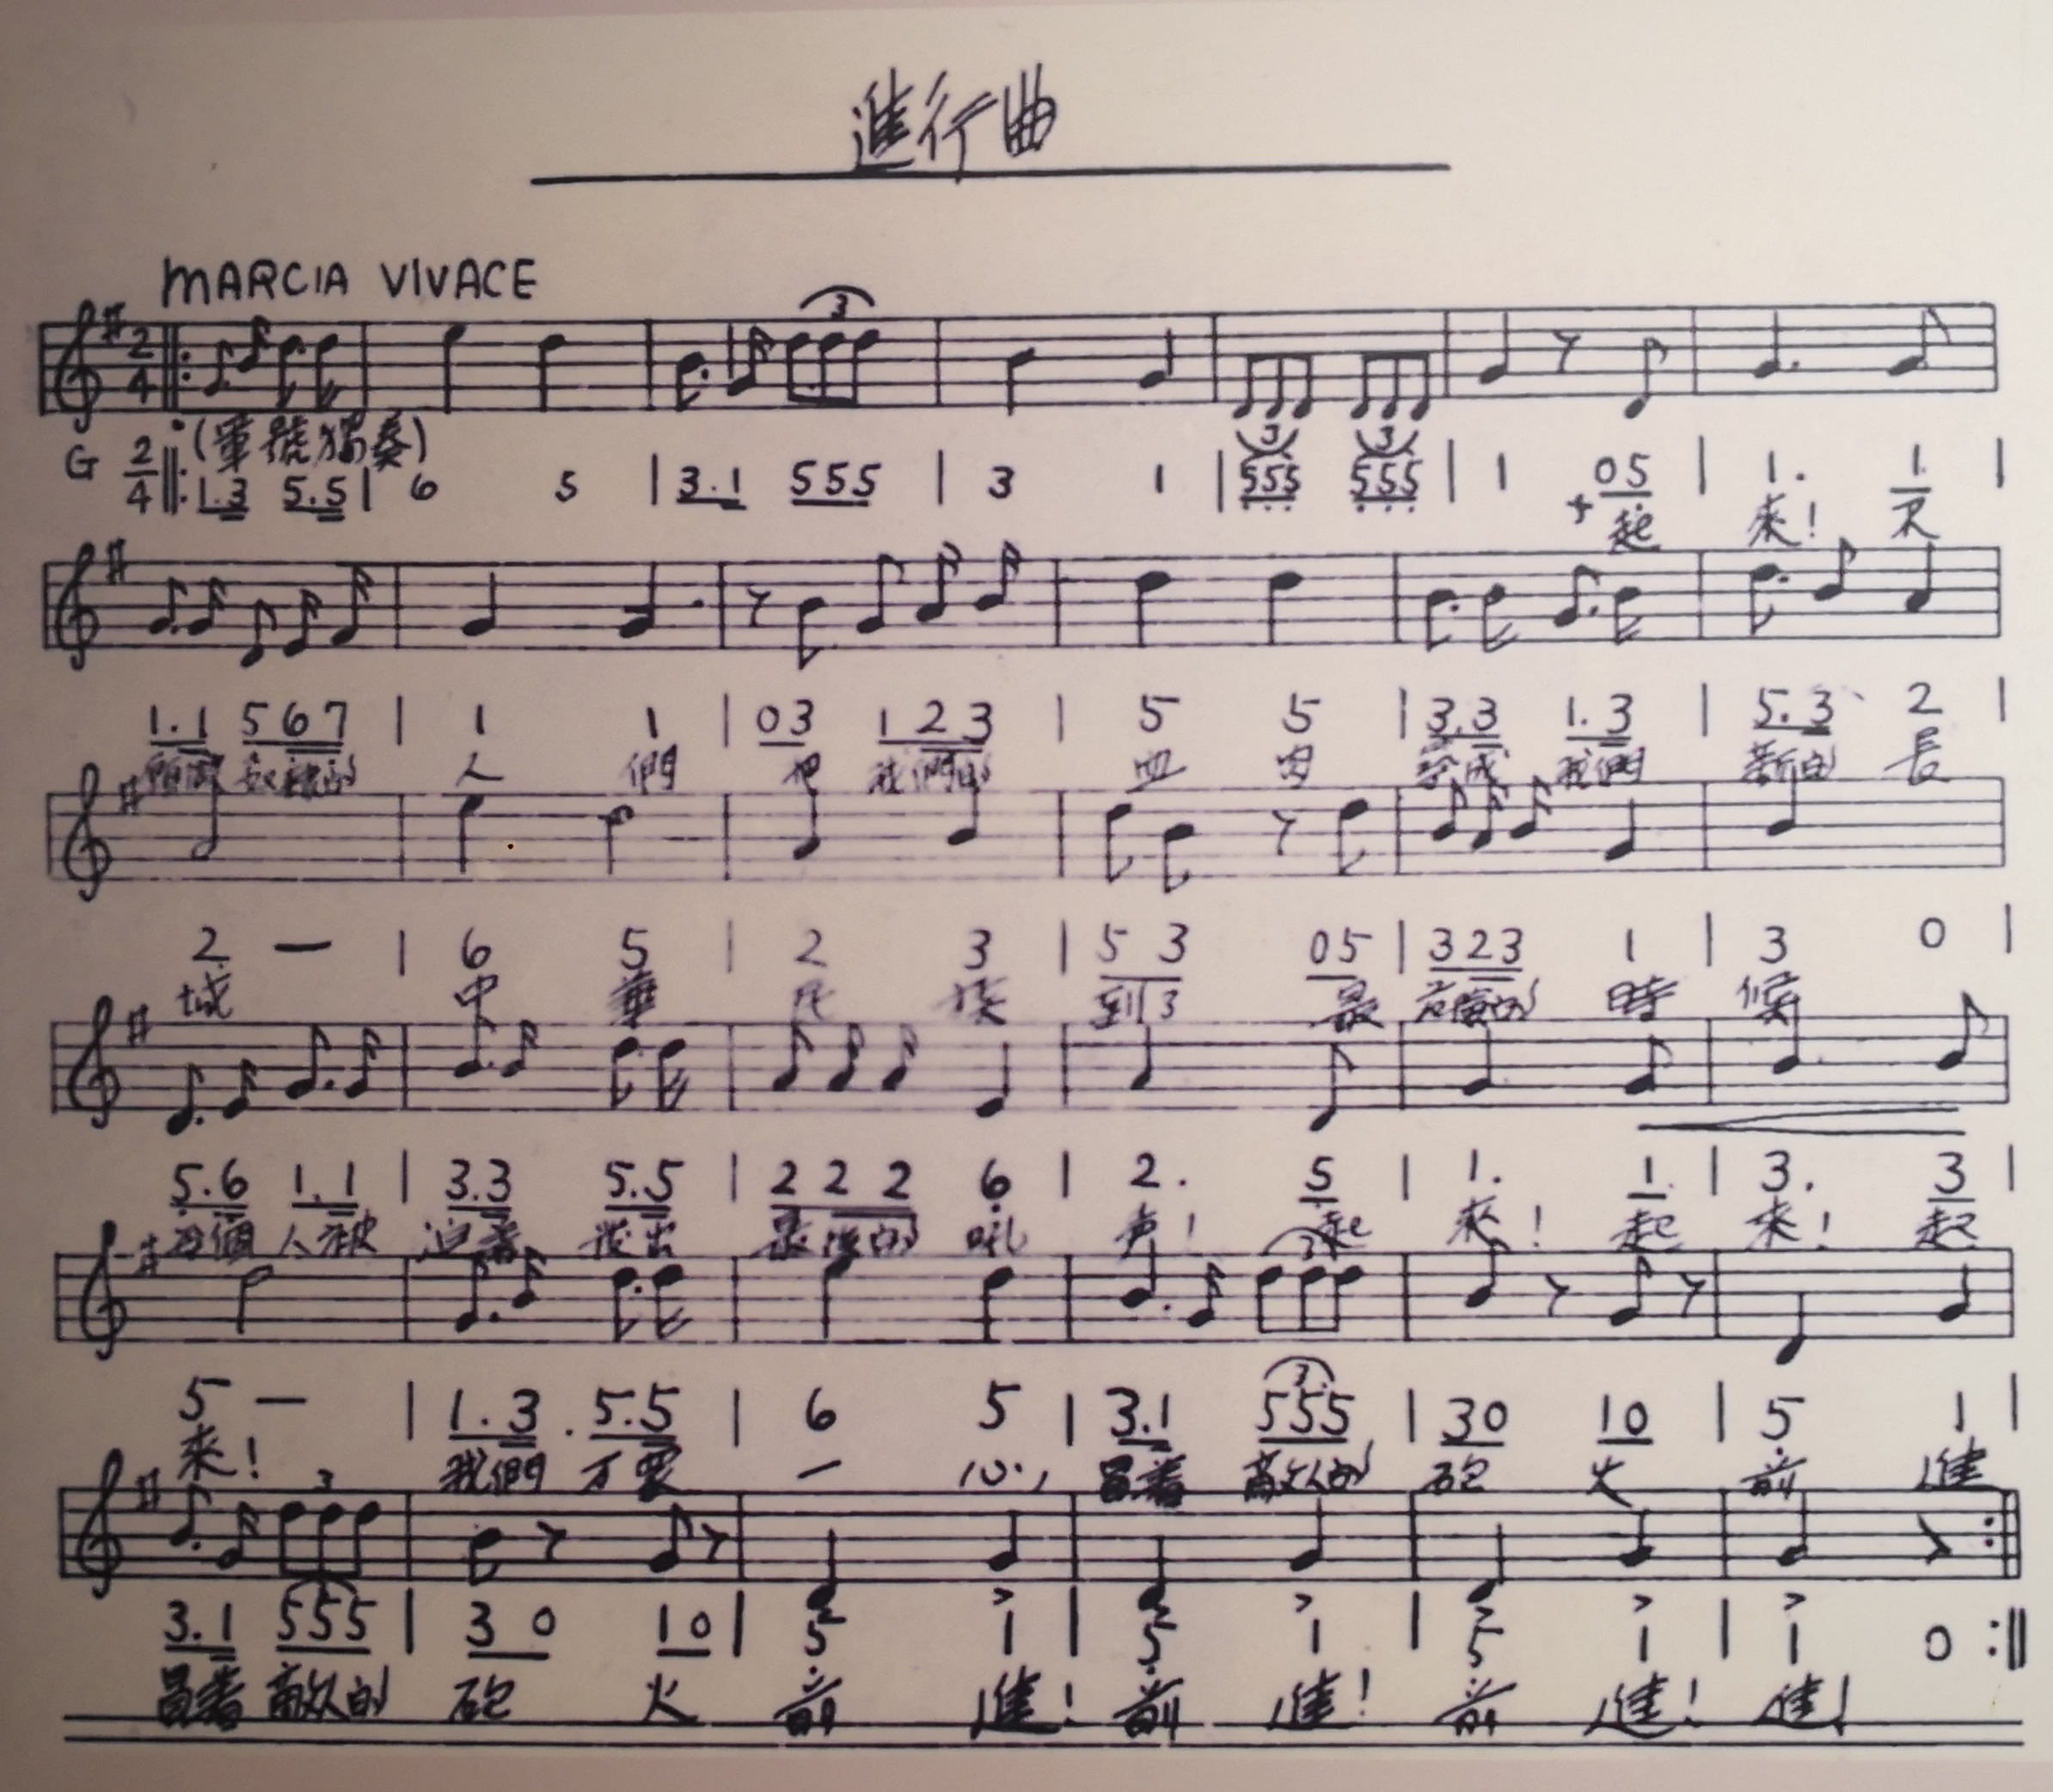 進行曲
MARCIA VIVACE
2/4 3
(軍號獨奏)
3 3
G 2/4 ‖: 1.3 5.5 | 6 5 | 3.1 555 | 3 1 | 555 555 | 1 05 | 1. 1 |
起 來! 不
1.1 567 | 1 1 | 03 123 | 5 5 | 3.3 1.3 | 5.3 2 |
人 們 把 我們的 血 肉 我們 新的 長
2 — | 6 5 | 2 3 | 5 3 05 | 323 1 | 3 0 |
城 中 華 民 族 到了 最 危險的 時 候
5.6 1.1 | 3.3 5.5 | 2 2 2 6 | 2. 5 | 1. 1 | 3. 3 |
每個 人被 迫着 發出 最後的 吼 声! 起 來! 起 來! 起
3
5 — | 1.3 5.5 | 6 5 | 3.1 555 | 30 10 | 5 1 |
3
來! 我們 万眾 一 心, 冒着 敵人的 砲 火 前 進
3
3.1 555 | 3 0 10 | 5 1 | 5 1 | 5 1 | 1 0 :‖
冒着 敵人的 砲 火 前 進! 前 進! 前 進! 進!